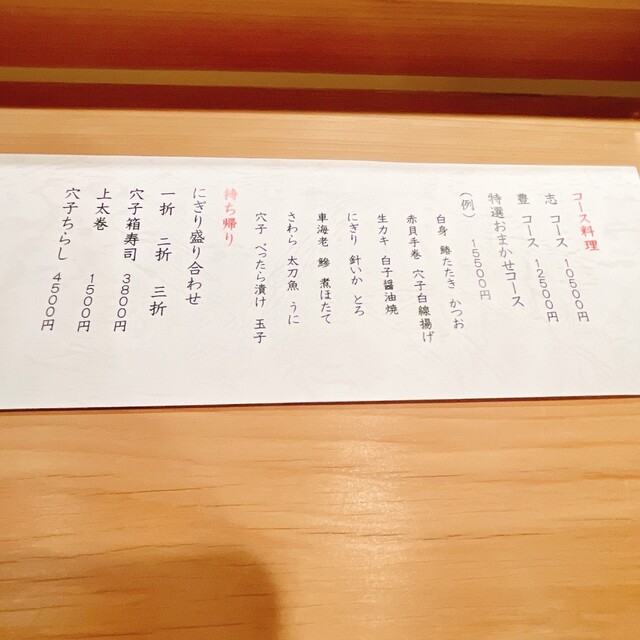 コース料理
志 コース 10500円
豊 コース 12500円
特選おまかせコース
15500円
(例)
白身 鰆たたき かつお
赤貝手巻 穴子白線揚げ
生カキ 白子醤油焼
にぎり 針いか とろ
車海老 鰺 煮ほたて
さわら 太刀魚 うに
穴子 べったら漬け 玉子
持ち帰り
にぎり盛り合わせ
一折 二折 三折
穴子箱寿司 3800円
上太巻 1500円
穴子ちらし 4500円